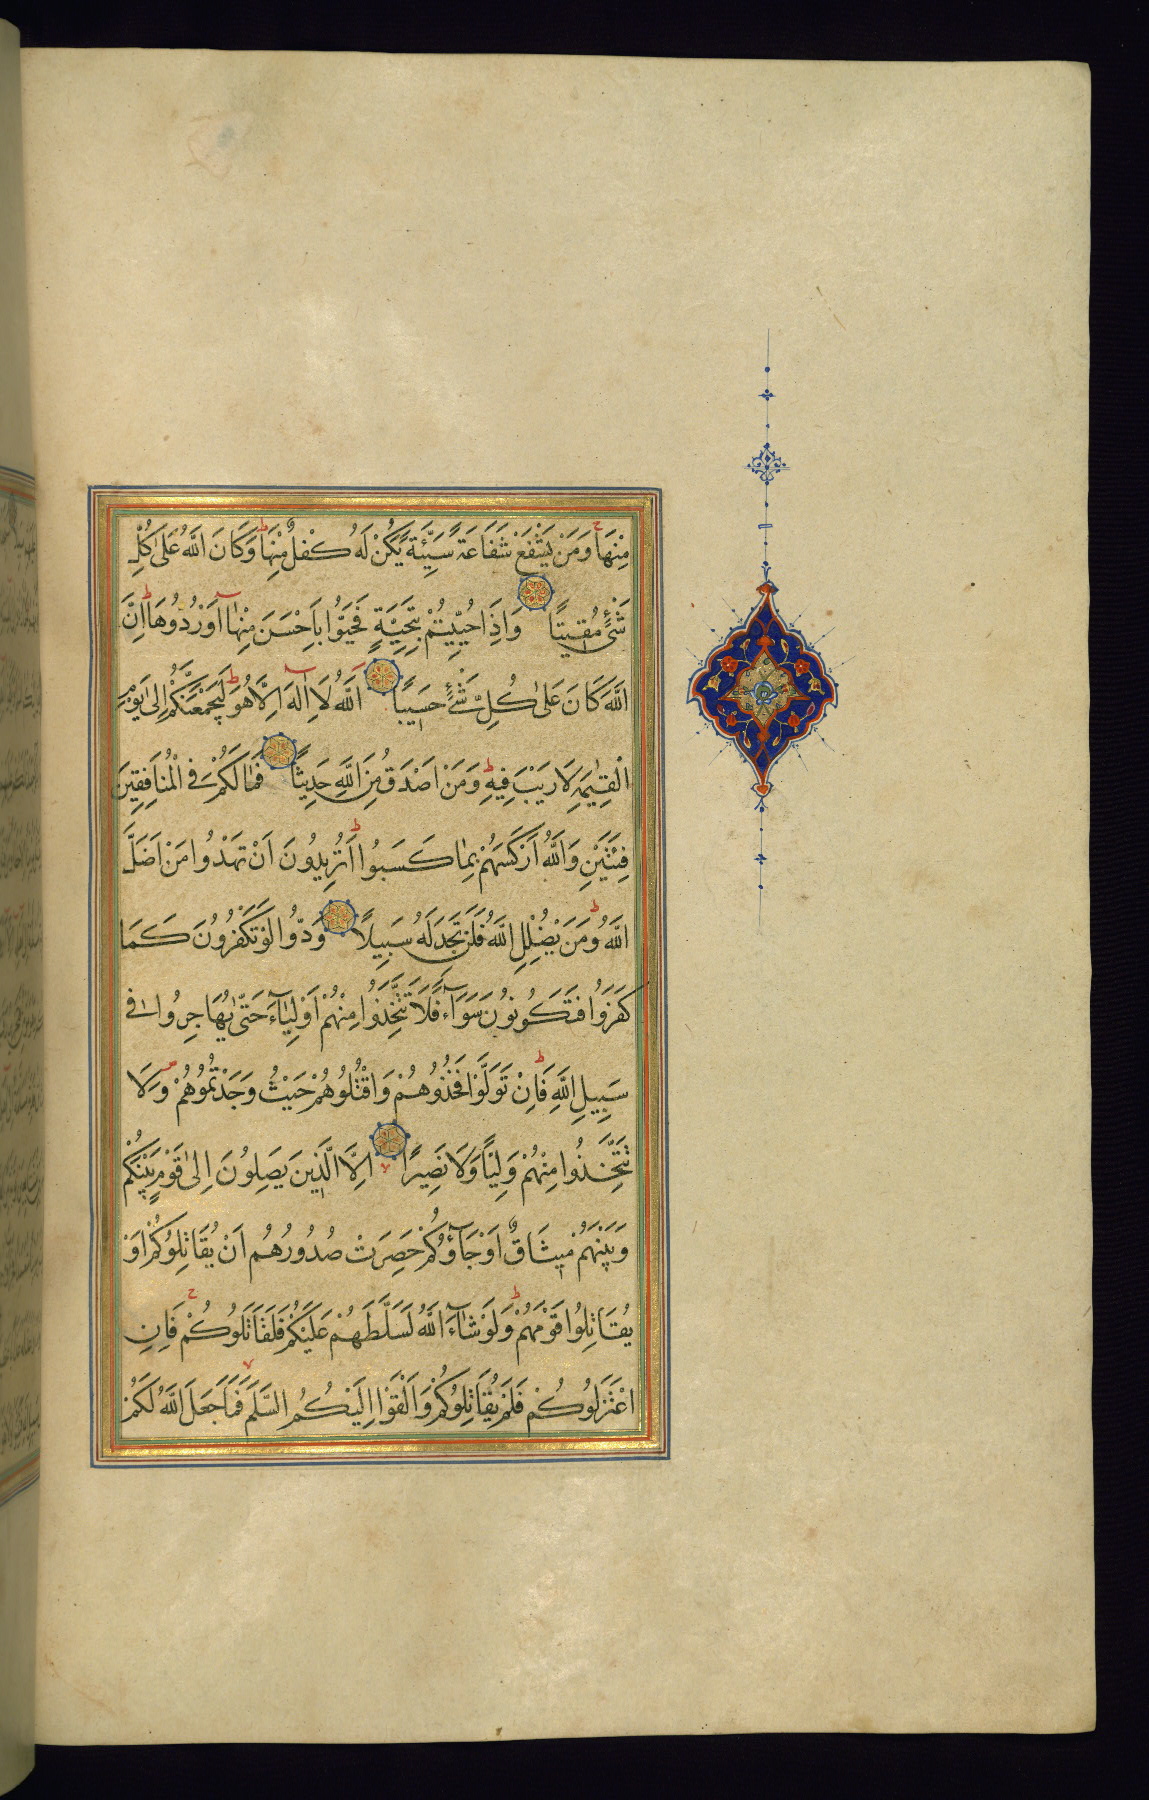 مِنْهَا وَمَنْ يَشْفَعْ شَفَاعَةً سَيِّئَةً يَكُنْ لَهُ كِفْلٌ مِنْهَا وَكَانَ اللَّهُ عَلَى كُلِّ
شَيْءٍ مُقِيتًا وَاِذَا حُيِّيتُمْ بِتَحِيَّةٍ فَحَيُّوا بِاَحْسَنَ مِنْهَا اَوْ رُدُّوهَا اِنَّ
اللَّهَ كَانَ عَلَى كُلِّ شَيْءٍ حَسِيبًا اَللَّهُ لَا اِلَهَ اِلَّا هُوَ لَيَجْمَعَنَّكُمْ اِلَى يَوْمِ
الْقِيٰمَةِ لَا رَيْبَ فِيهِ وَمَنْ اَصْدَقُ مِنَ اللَّهِ حَدِيثًا فَمَا لَكُمْ فِي الْمُنَافِقِينَ
فِئَتَيْنِ وَاللَّهُ اَرْكَسَهُمْ بِمَا كَسَبُوا اَتُرِيدُونَ اَنْ تَهْدُوا مَنْ اَضَلَّ
اللَّهُ وَمَنْ يُضْلِلِ اللَّهُ فَلَنْ تَجِدَ لَهُ سَبِيلًا وَدُّوا لَوْ تَكْفُرُونَ كَمَا
كَفَرُوا فَتَكُونُونَ سَوَاءً فَلَا تَتَّخِذُوا مِنْهُمْ اَوْلِيَاءَ حَتَّى يُهَاجِرُوا فِي
سَبِيلِ اللَّهِ فَاِنْ تَوَلَّوْا فَخُذُوهُمْ وَاقْتُلُوهُمْ حَيْثُ وَجَدْتُمُوهُمْ وَلَا
تَتَّخِذُوا مِنْهُمْ وَلِيًّا وَلَا نَصِيرًا اِلَّا الَّذِينَ يَصِلُونَ اِلَى قَوْمٍ بَيْنَكُمْ
وَبَيْنَهُمْ مِيثَاقٌ اَوْ جَاؤُكُمْ حَصِرَتْ صُدُورُهُمْ اَنْ يُقَاتِلُوكُمْ اَوْ
يُقَاتِلُوا قَوْمَهُمْ وَلَوْ شَاءَ اللَّهُ لَسَلَّطَهُمْ عَلَيْكُمْ فَلَقَاتَلُوكُمْ فَاِنِ
اعْتَزَلُوكُمْ فَلَمْ يُقَاتِلُوكُمْ وَاَلْقَوْا اِلَيْكُمُ السَّلَمَ فَمَا جَعَلَ اللَّهُ لَكُمْ